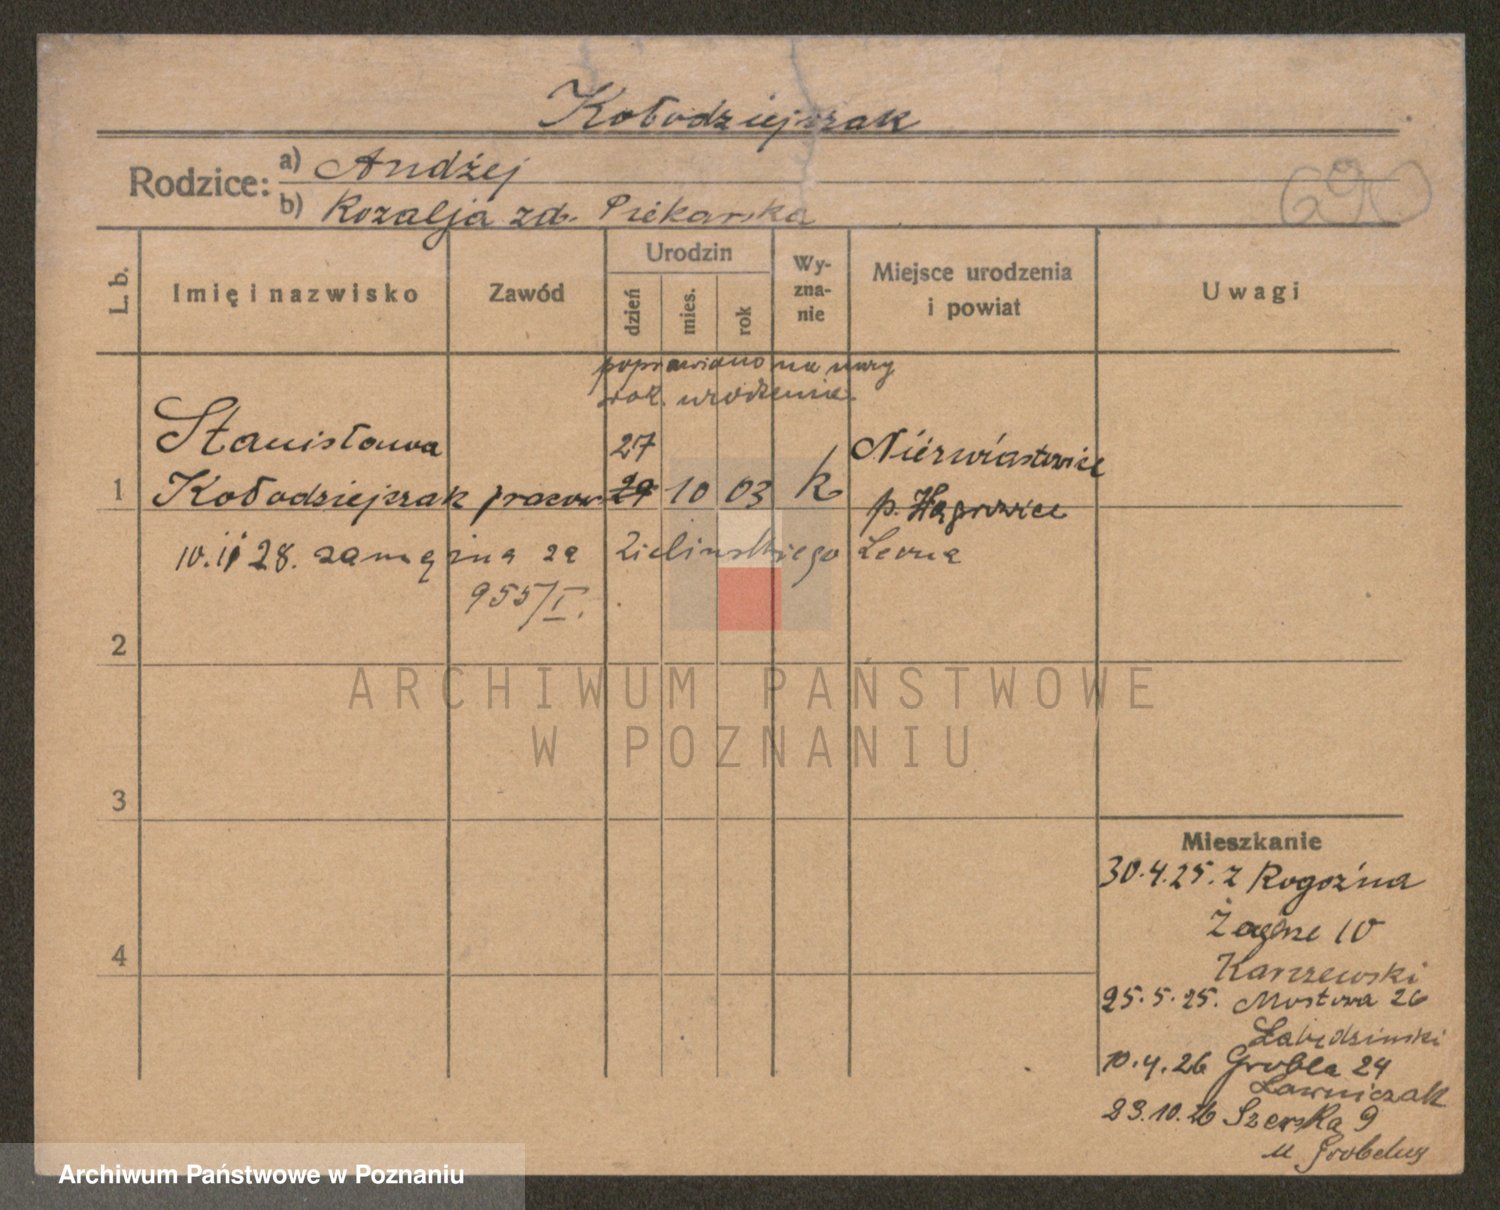 Kołodziejczak
Rodzice: a) Andżej
b) Rozalja zd. Piekarska
690
L. b. Imię i nazwisko Zawód Urodzin dzień mies. rok Wy-zna-nie Miejsce urodzenia i powiat Uwagi
poprawiono na
rok urodzenia.
Stanisława 27
1 Kołodziejczak pracow 29 10 03 k Nierwiastowice
p. Wągrowiec
10. II 28. zamężna za Zielinskiego Leona
955/I.
2
3
4
Mieszkanie
30.4.25. z Rogoźna
10
Karczewski
25.5.25. Mostowa 26
Łabędzinski
10.4.26 Grobla 24
Ławniczak
23.10.26 Szewska 9
u
ARCHIWUM PAŃSTWOWE
W POZNANIU
Archiwum Państwowe w Poznaniu